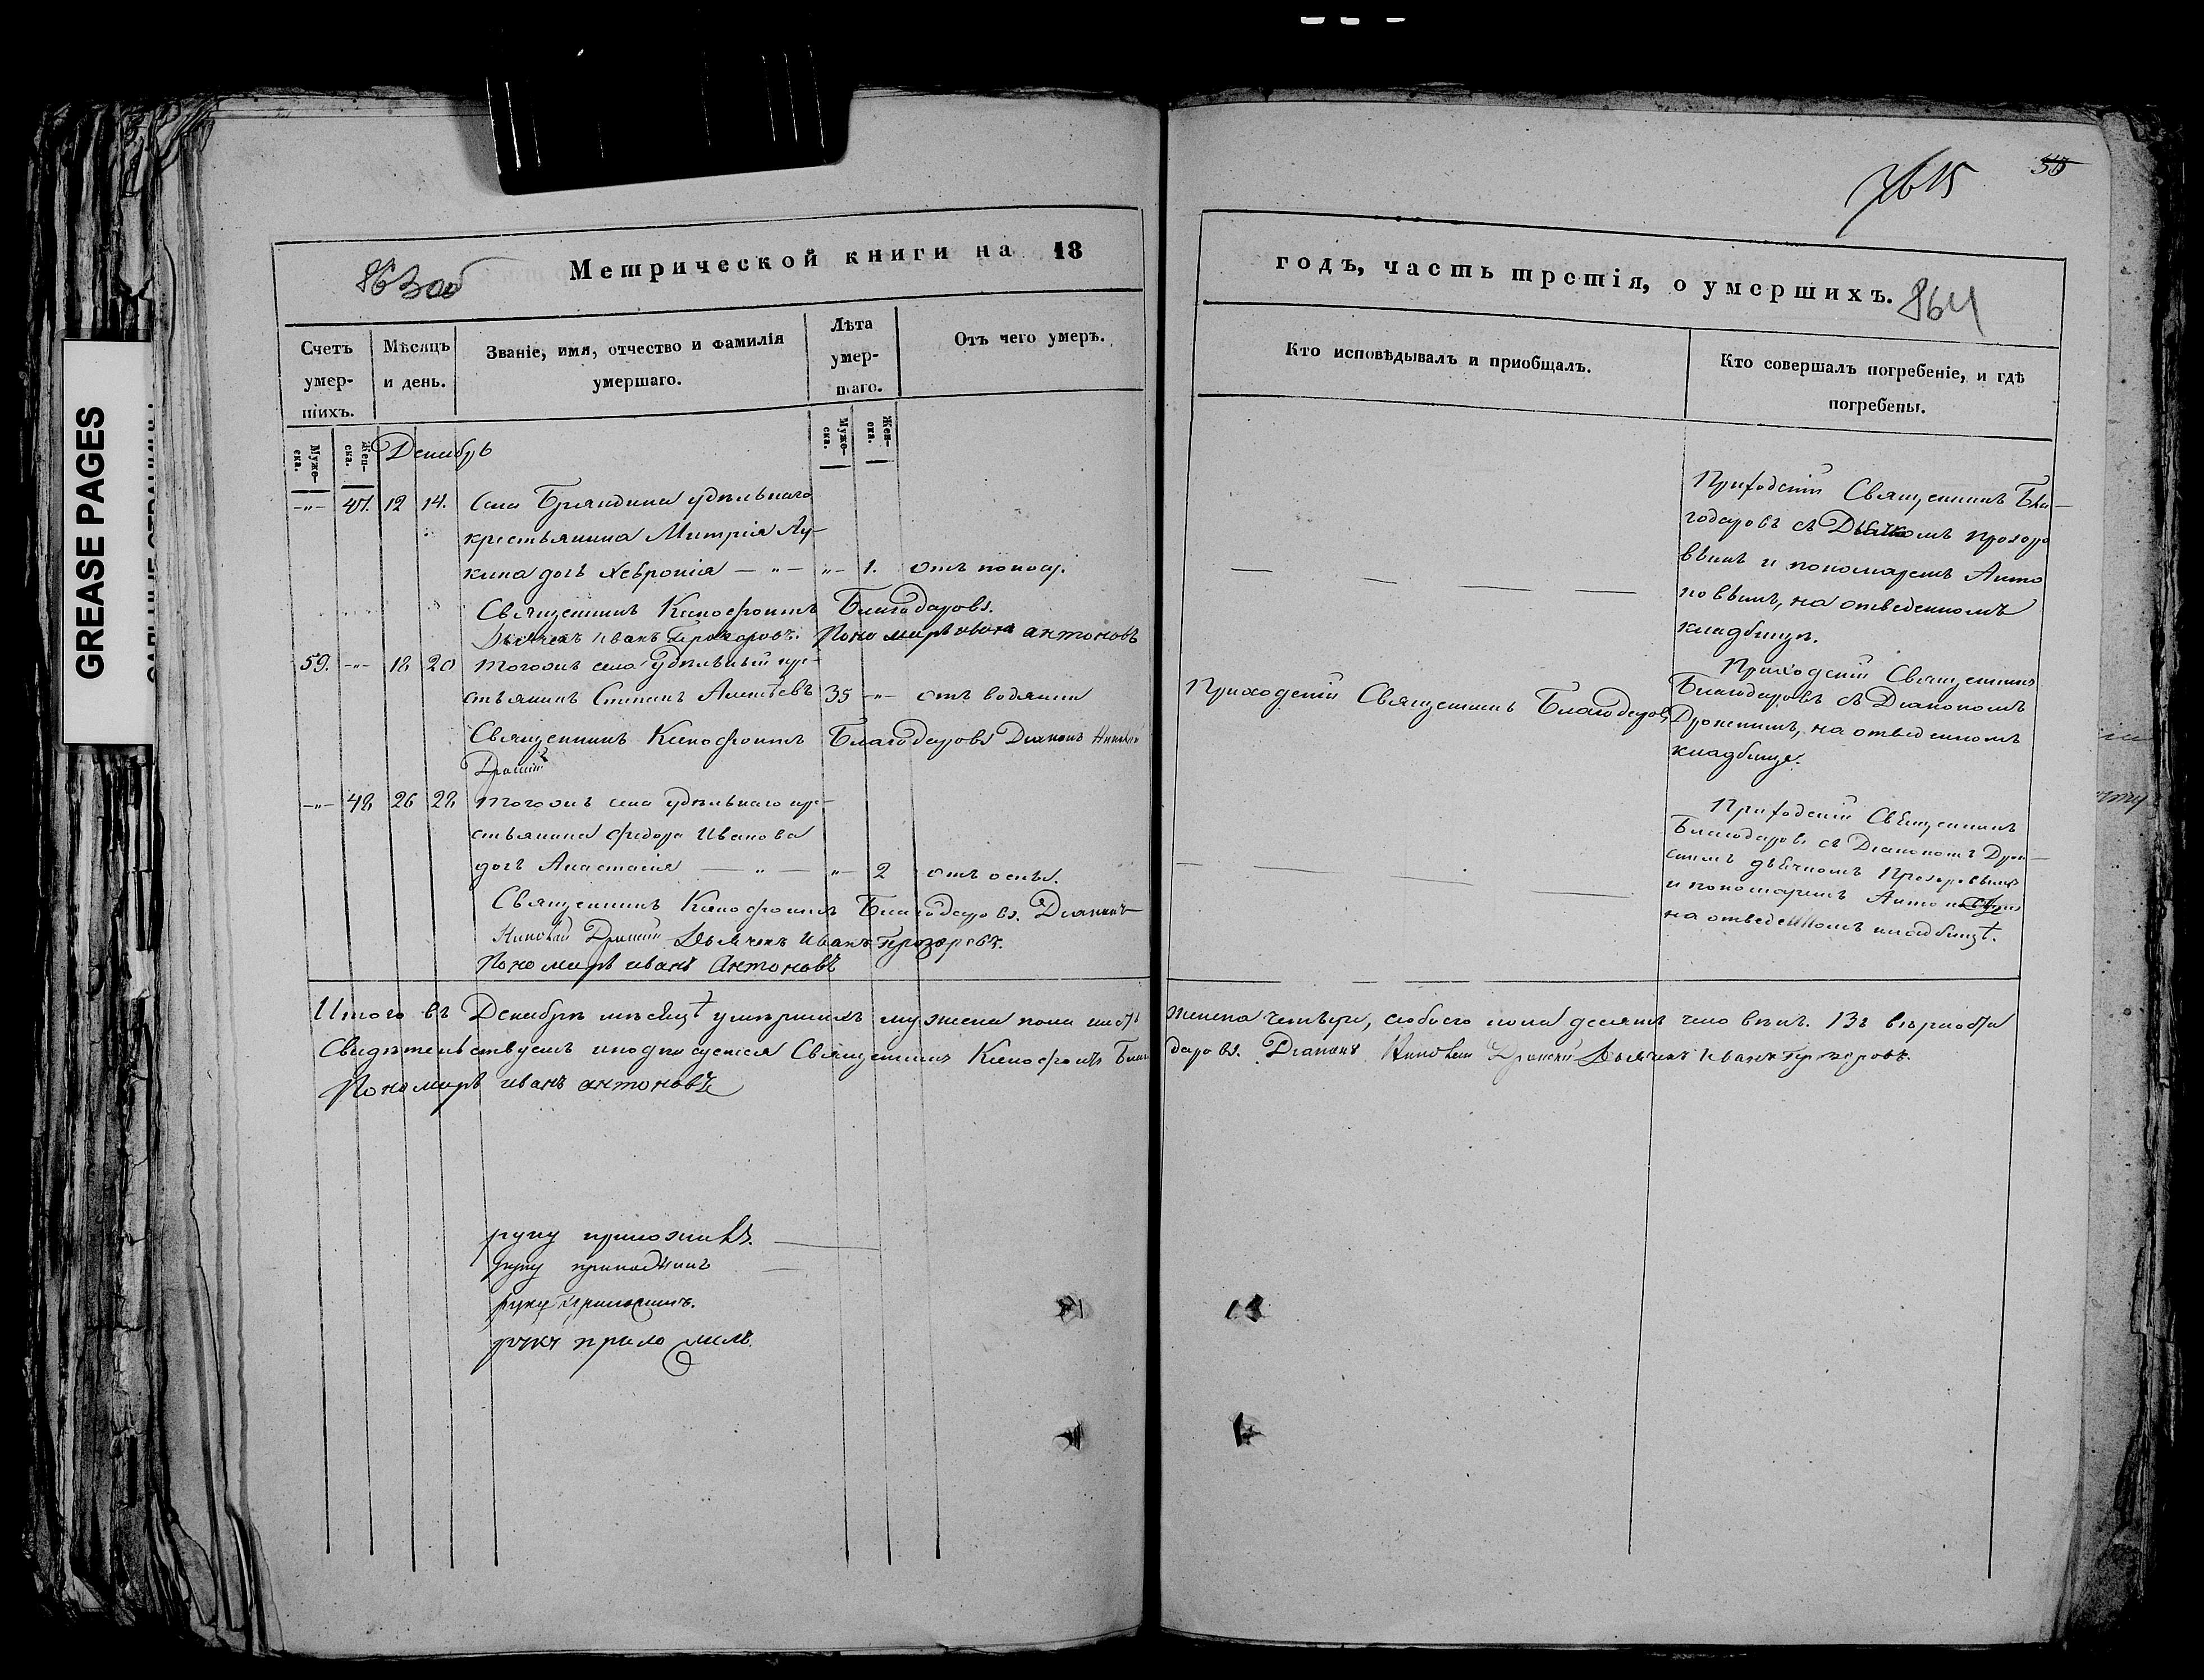 GREASE PAGES
863об
Метрической книги на 18
Счетъ умер-шихъ.
Мѣсяцъ и день.
Званіе, имя, отчество и фамилія умершаго.
Лѣта умер-шаго.
Отъ чего умеръ.
Муже-ска.
Жен-ска.
Муже-ска.
Жен-ска.
Декабрь
-"- 47. 12 14. Села Бряндина удѣльнаго
крестьянина Митрія Лу-
кина дочь Хеѵронія — " — "- 1. отъ поносу.
Священникъ Ксенофонтъ Благодаровъ.
Дьячекъ Иванъ Прохоровъ. Пономарь иванъ антоновъ
59. -"- 18 20 Тогожъ села Удѣльный кре-
стьянинъ Степанъ Алексѣевъ 35 -"- отъ водянки
Священникъ Ксенофонтъ Благодаровъ Діаконъ Николай
-"- 48 26 28 Тогожъ села удѣльнаго кре-
стьянина Федора Иванова
дочь Анастасія — " — "- 2 отъ оспы.
Священникъ Ксенофонтъ Благодаровъ. Діаконъ
Николай Дьячекъ Иванъ Прохоровъ.
Пономарь иванъ Антоновъ
Итого въ Декабрѣ мѣсяцѣ умершихъ мужеска пола шесть
Свидѣтельствуемъ и подписуемся Священникъ Ксенофонтъ Благо
Пономарь иванъ антоновъ
руку приложилъ.
руку приложилъ
руку приложилъ.
руку приложилъ.
7615
50
годъ, часть третія, о умершихъ.
864
Кто исповѣдывалъ и приобщалъ.
Кто совершалъ погребеніе, и гдѣ погребены.
Приходскій Священникъ Бла-
годаровъ съ Дьячкомъ Прохоро
вымъ и пономаремъ Анто
новымъ, на отведенномъ
кладбищѣ.
Приходскій Священникъ Благодаровъ
Приходскій Священникъ
Благодаровъ съ Діакономъ
на отведенномъ
кладбище.
Приходскій Священникъ
Благодаровъ съ Діакономъ
дьячкомъ Прохоровымъ
и пономаремъ Антоновымъ
на отведенномъ кладбищѣ.
женска четыре, а обоего пола десять человѣкъ. Въ вѣрности
даровъ. Діаконъ Николай Дьячекъ Иванъ Прохоровъ.